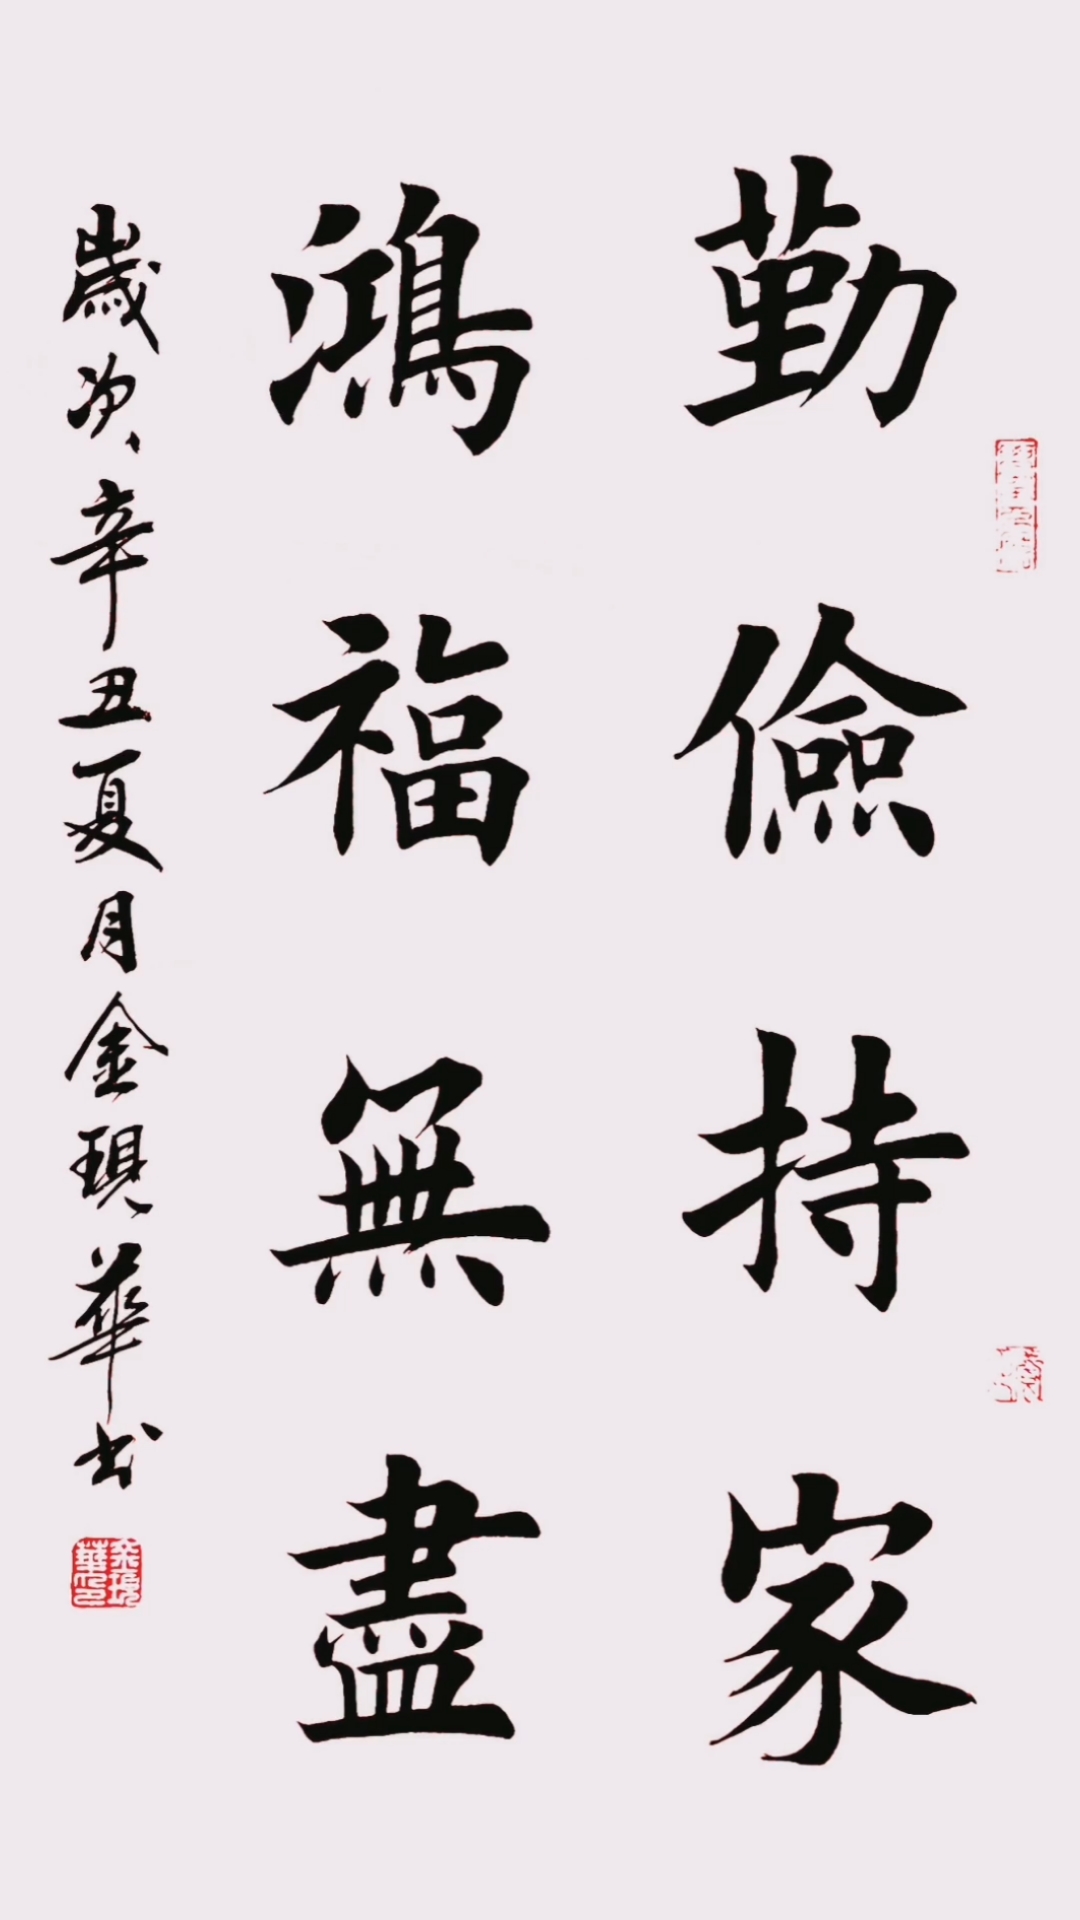 勤儉持家
鴻福無盡
歲次辛丑夏月金現華书